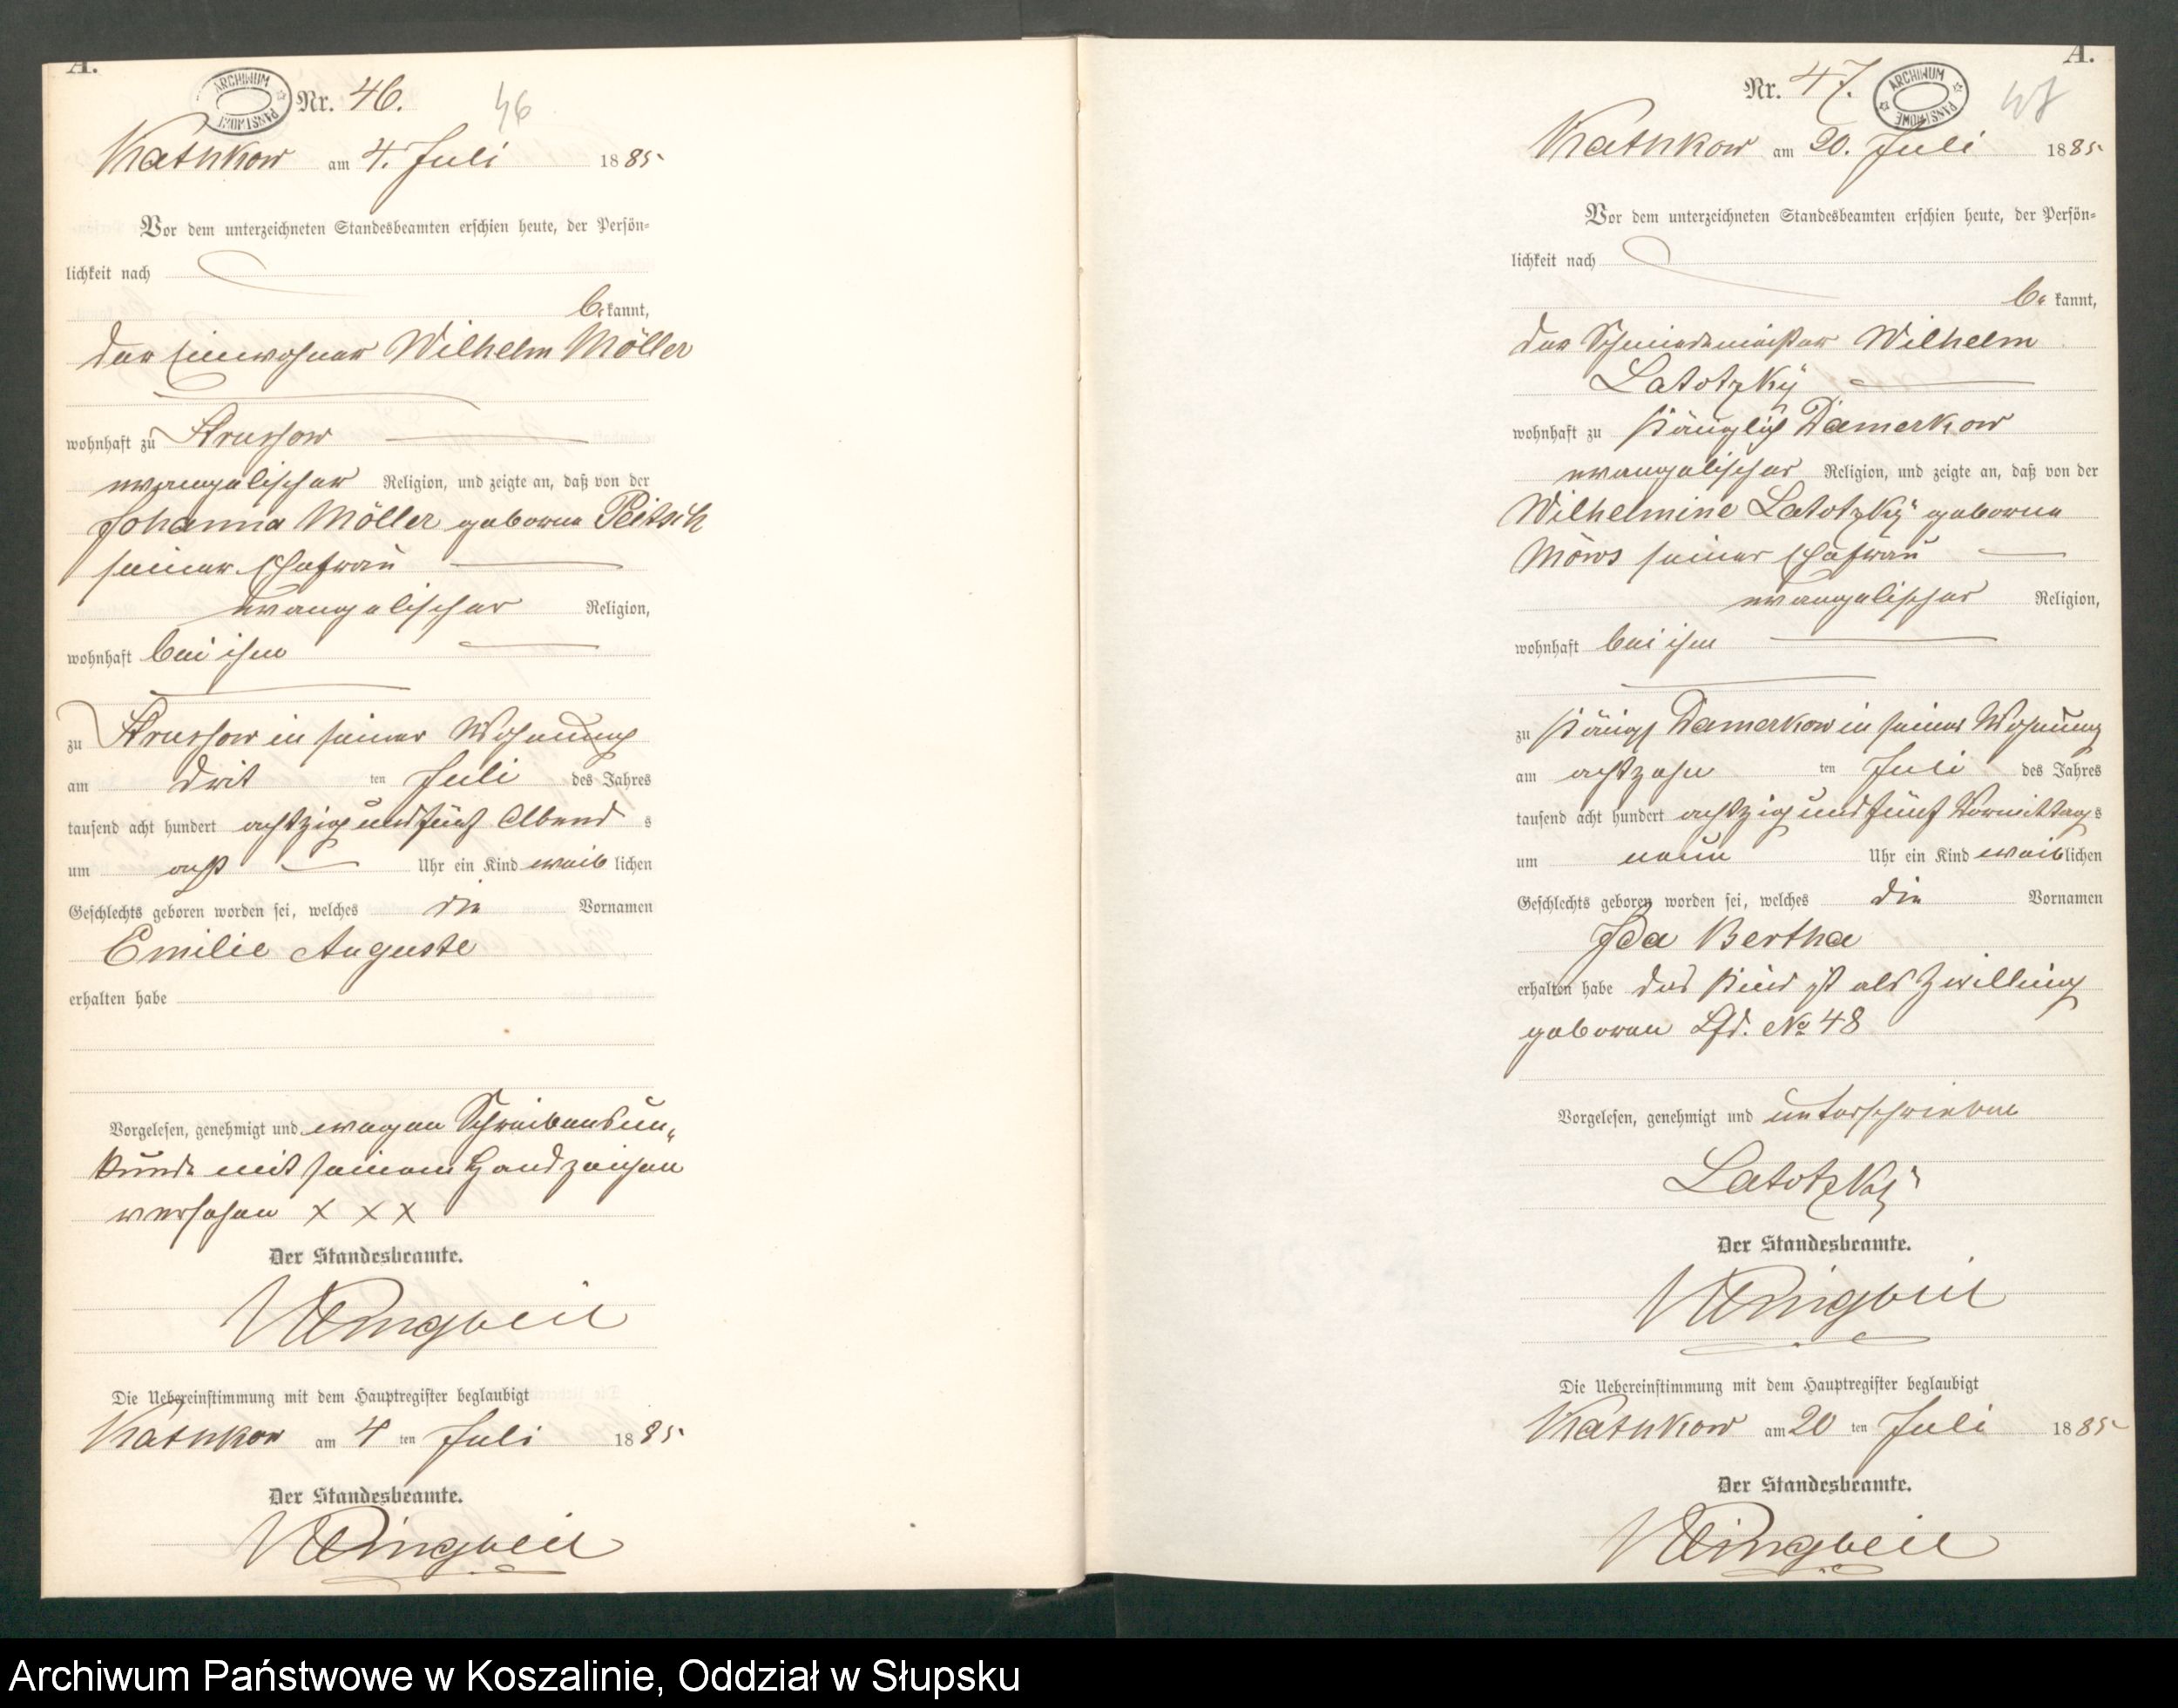 A.
ARCHIWUM PAŃSTWOWE
Nr. 46.
46
Kathkow am 4. Juli 1885
Vor dem unterzeichneten Standesbeamten erschien heute, der Persön-
lichkeit nach
be kannt,
der Einwohner Wilhelm Möller
wohnhaft zu Strussow
evangelischer Religion, und zeigte an, daß von der
Johanna Möller geborne Peitsch
seiner Ehefrau
evangelischer Religion,
wohnhaft bei ihm
zu Strussow in seiner Wohnung
am drit ten Juli des Jahres
tausend acht hundert achtzig und fünf Abend s
um acht Uhr ein Kind weib lichen
Geschlechts geboren worden sei, welches die Vornamen
Emilie Auguste
erhalten habe
Vorgelesen, genehmigt und wegen Schreibensun-
kunde mit seinem Handzeichen
versehen x x x
Der Standesbeamte.
Die Uebereinstimmung mit dem Hauptregister beglaubigt
Kathkow am 4 ten Juli 1885
Der Standesbeamte.
A.
Nr. 47.
ARCHIWUM PAŃSTWOWE
47
Kathkow am 20. Juli 1885
Vor dem unterzeichneten Standesbeamten erschien heute, der Persön-
lichkeit nach
be kannt,
der Schmiedemeister Wilhelm
Latotzky
wohnhaft zu Königlich Damerkow
evangelischer Religion, und zeigte an, daß von der
Wilhelmine Latotzky geborne
Möws seiner Ehefrau
evangelischer Religion,
wohnhaft bei ihm
zu Königl Damerkow in seiner Wohnung
am achtzehn ten Juli des Jahres
tausend acht hundert achtzig und fünf Vormittag s
um neun Uhr ein Kind weib lichen
Geschlechts geboren worden sei, welches die Vornamen
Ida Bertha
erhalten habe das Kind ist als Zwilling
geboren Lfd. No 48
Vorgelesen, genehmigt und unterschrieben
Latotzky
Der Standesbeamte.
Die Uebereinstimmung mit dem Hauptregister beglaubigt
Kathkow am 20 ten Juli 1885
Der Standesbeamte.
Archiwum Państwowe w Koszalinie, Oddział w Słupsku